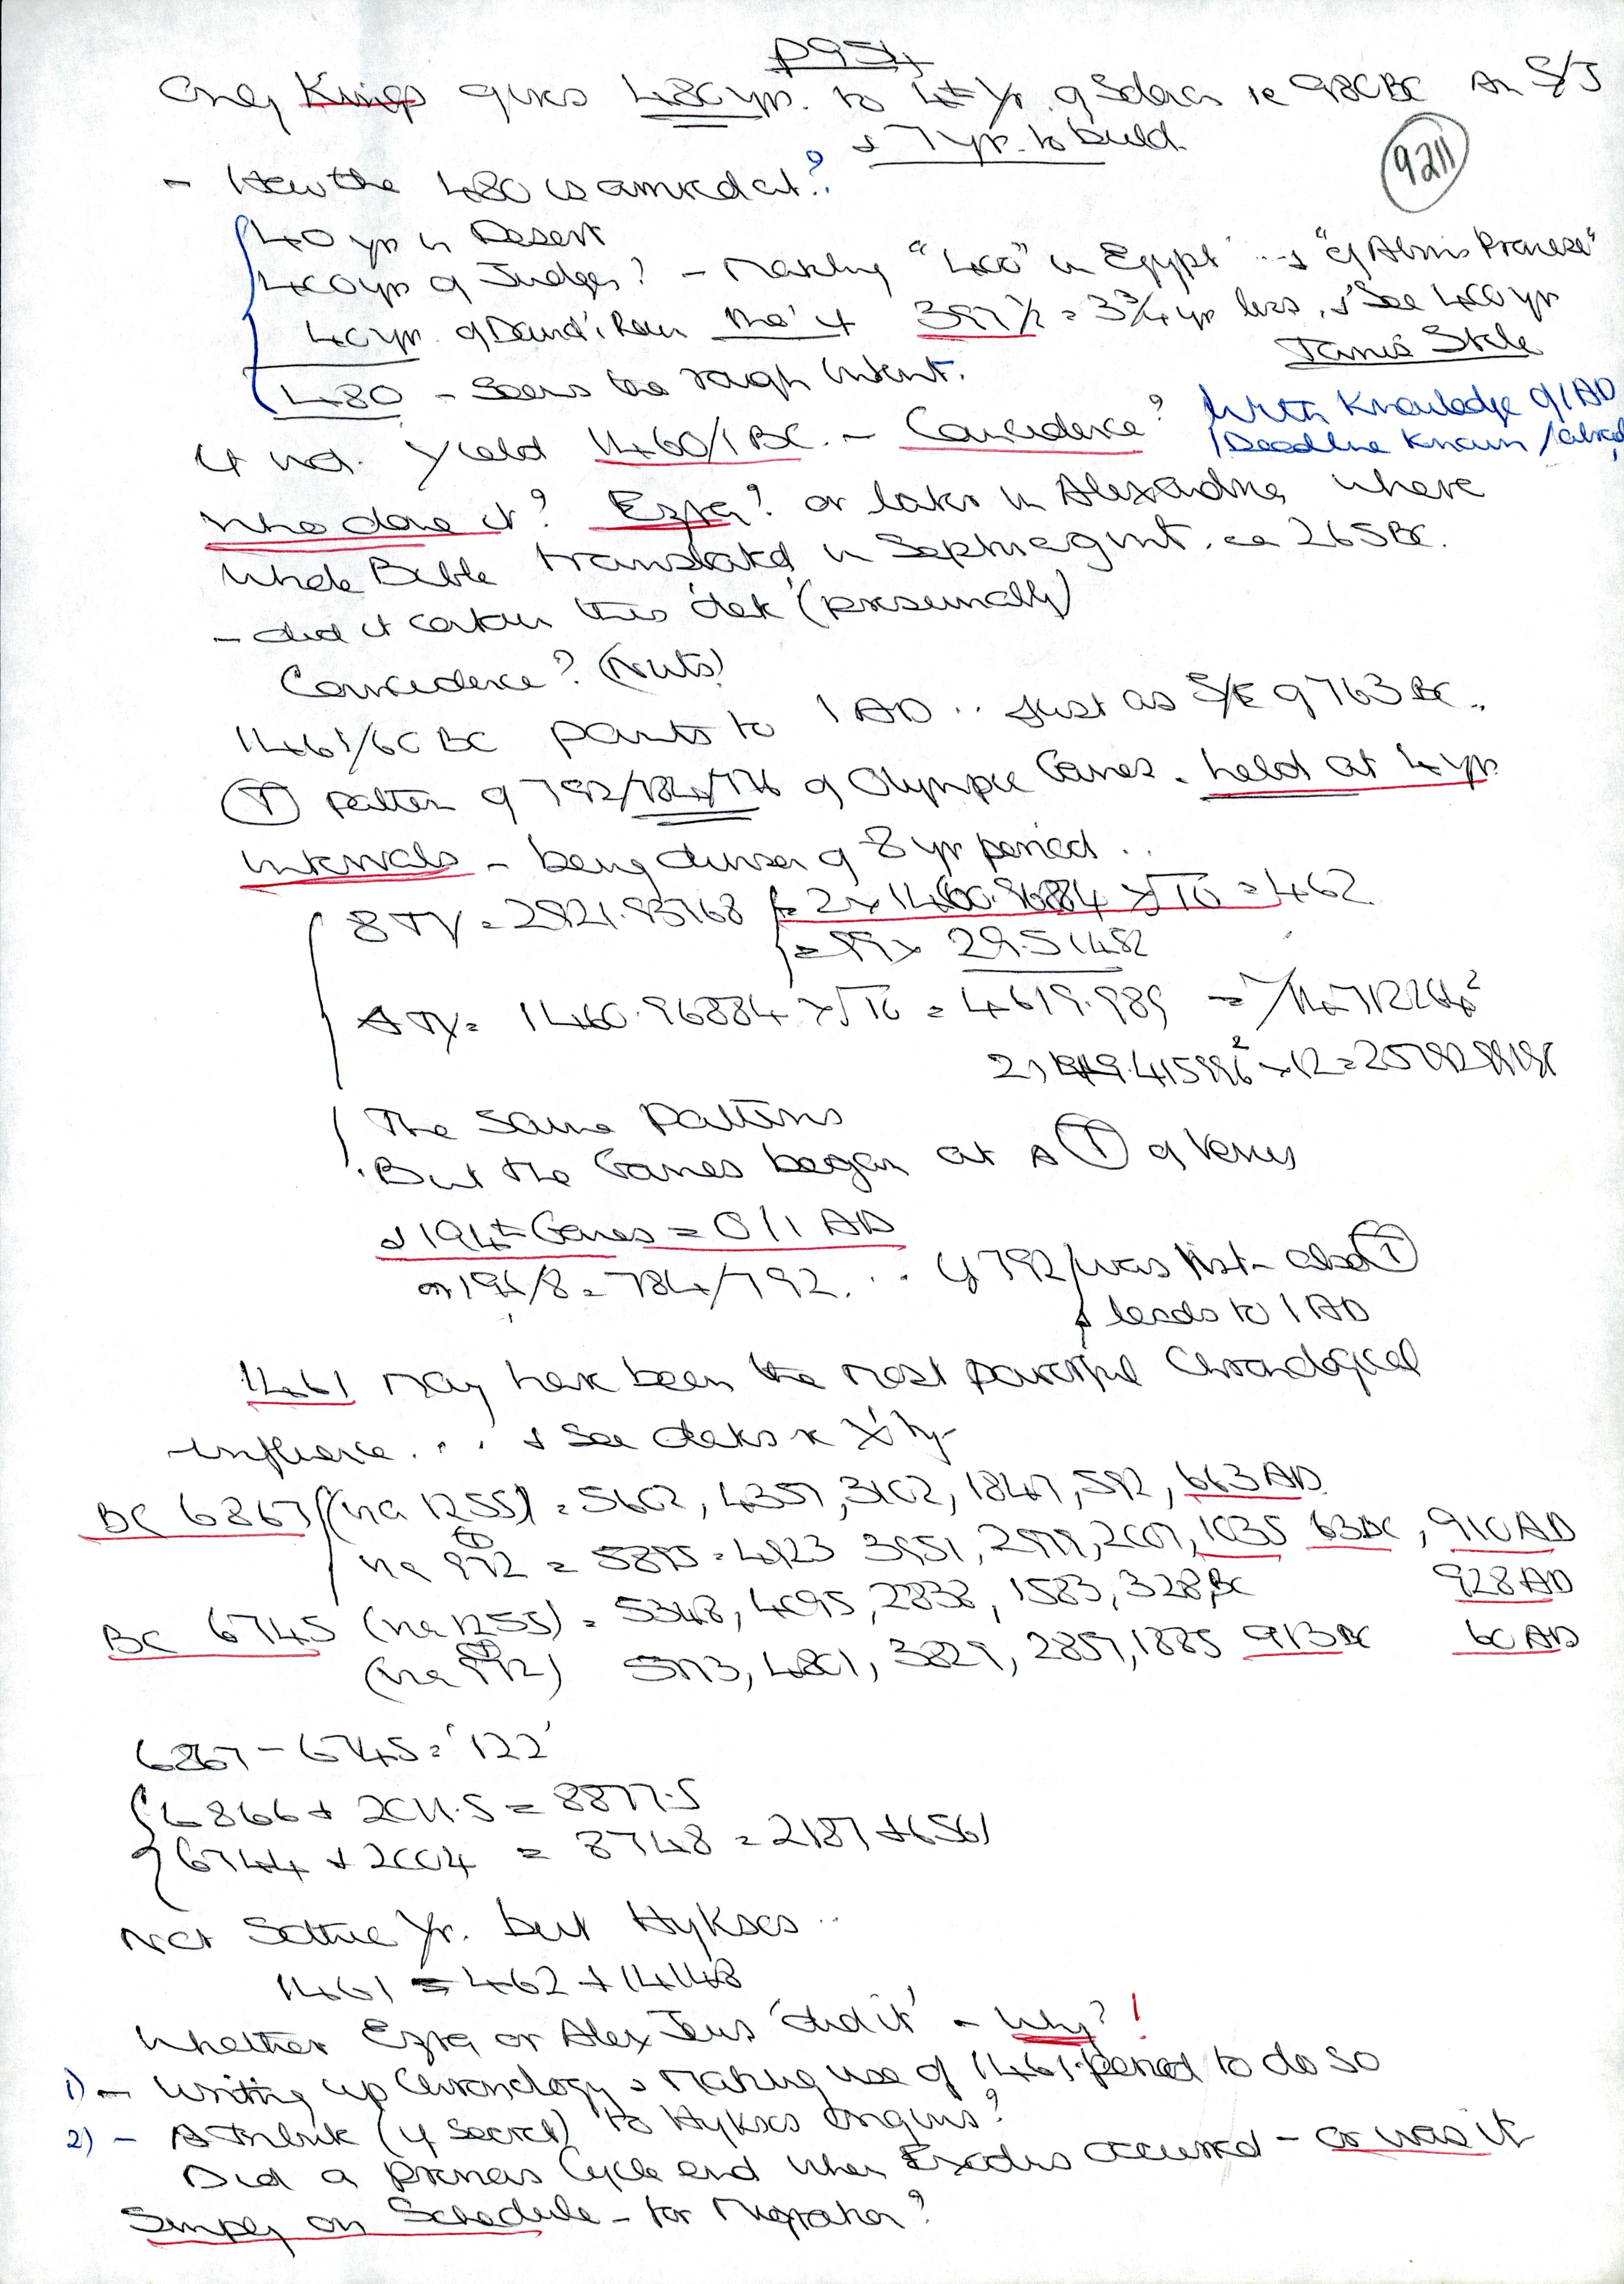 p954
Only Kings gives 480 yr. to 4th Yr. of Solomon ie 980BC on S/J
& 7 yr. to build
9211
- How the 480 is arrived at?
40 yr in Desert
400 yr of Judges? - Making "400" in Egypt & "of Abm's Promise"
40 yr. of David's Reign tho' it 397½ = 3¾ yr less, & See 400 yr
Tanis Stele
480 - Seems the rough intent.
if not. Yield 1460/1 BC. - Coincidence? With Knowledge of 1 AD
Deadline Known
Who done it? Ezra? or later in Alexandria, where
Whole Bible translated in Septuagint. ca 265BC.
- did it contain this 'date' (presumably)
Coincidence? (Nuts)
1461/60 BC points to 1 AD .. Just as S/E of 763 BC..
T pattern of 792/784/776 of Olympic Games. held at 4 yr
intervals - being division of 8 yr period ..
8 TY = 2921.93768 = 2 x 1460.96884 x √10 = 462
= 99 x 29.51482
4 TY = 1460.96884 x √10 = 4619.989
The Same Patterns
But the Games began at a T of Venus
& 194th Games = 0/1 AD
or 196/8 = 784/792. .. if 792 was first - also T
& leads to 1 AD
1461 may have been the most powerful Chronological
influence. .. & See dates
BC 6867 (via 1255) = 5602, 4357, 3102, 1847, 592, 663 AD
via 972 = 5895 = 4923 3951, 2979, 2007, 1035 63BC, 910 AD
BC 6745 (via 1255) = 5348, 4095, 2838, 1583, 328 BC 928 AD
(via 972) 5773, 4801, 3829, 2857, 1885 913 BC 60 AD
6867 - 6745 = '122'
6866 + 2011.5 = 8877.5
6744 + 2004 = 8748 = 2187 + 6561
Not Sothic Yr. but Hyksos ..
1461 = 462 + 14148
Whether Ezra or Alex Jews 'did it' - Why?!
1) - Writing up Chronology & Making use of 1461 period to do so
2) - A Tribute (if Secret) to Hyksos Origins?
Did a Cycle end when Exodus occurred - or was it
Simply on Schedule - for Migration?